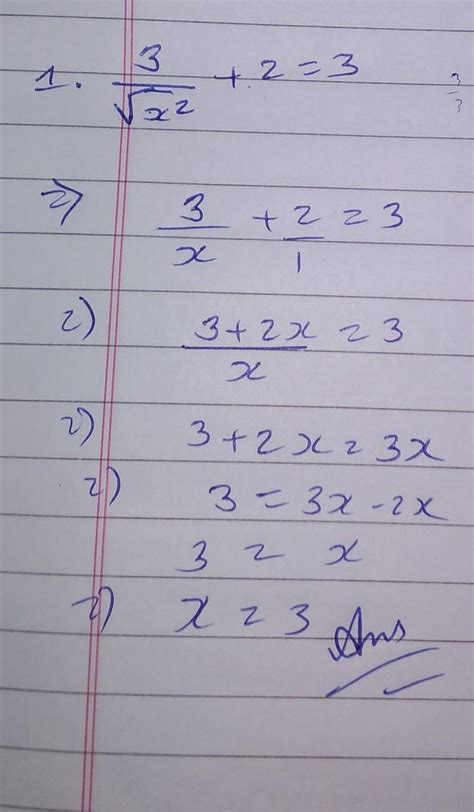 1. 3/√x² + 2 = 3
3/3
⇒ 3/x + 2/1 = 3
⇒ (3+2x)/x = 3
⇒ 3+2x = 3x
⇒ 3 = 3x-2x
3 = x
⇒ x = 3 Ans